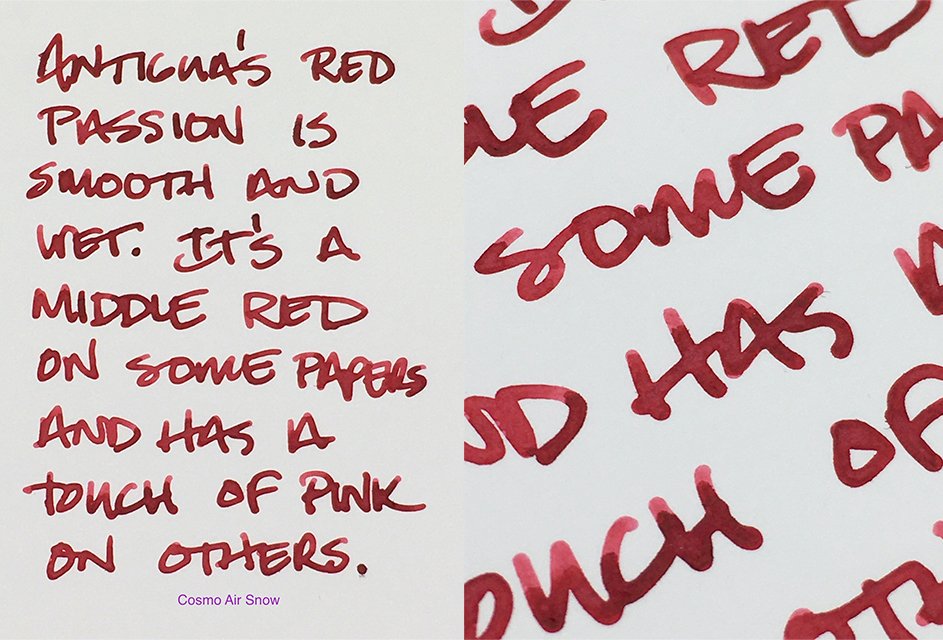 ANTIGUA'S RED
PASSION IS
SMOOTH AND
WET. IT'S A
MIDDLE RED
ON SOME PAPERS
AND HAS A
TOUCH OF PINK
ON OTHERS.
Cosmo Air Snow
LE RED
SOME PA
ND HAS A
OUCH OF